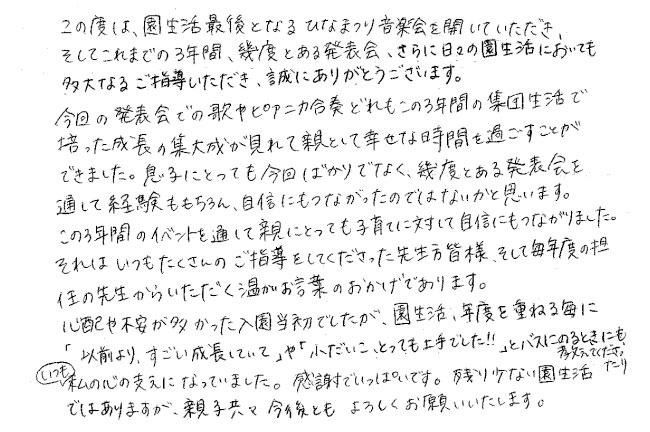 この度は、園生活最後となるひなまつり音楽会を開いていただき、
そしてこれまでの3年間、幾度とある発表会、さらに日々の園生活においても
多大なるご指導いただき、誠にありがとうございます。
今回の発表会での歌やピアニカ合奏どれもこの3年間の集団生活で
培った成長の集大成が見れて親として幸せな時間を過ごすことが
できました。息子にとっても今回ばかりでなく、幾度とある発表会を
通して経験ももちろん、自信にもつながったのではないかと思います。
この3年間のイベントを通して親にとっても子育てに対して自信にもつながりました。
それはいつもたくさんのご指導をしてくださった先生方皆様、そして毎年度の担
任の先生からいただく温かお言葉のおかげであります。
心配や不安が多かった入園当初でしたが、園生活、年度を重ねる毎に
「以前より、すごい成長していて」や「小だいこ、とっても上手でした!!」とバスにのるときにも
教えてくださったり
いつも私の心の支えになっていました。感謝でいっぱいです。残り少ない園生活
ではありますが、親子共々今後ともよろしくお願いいたします。